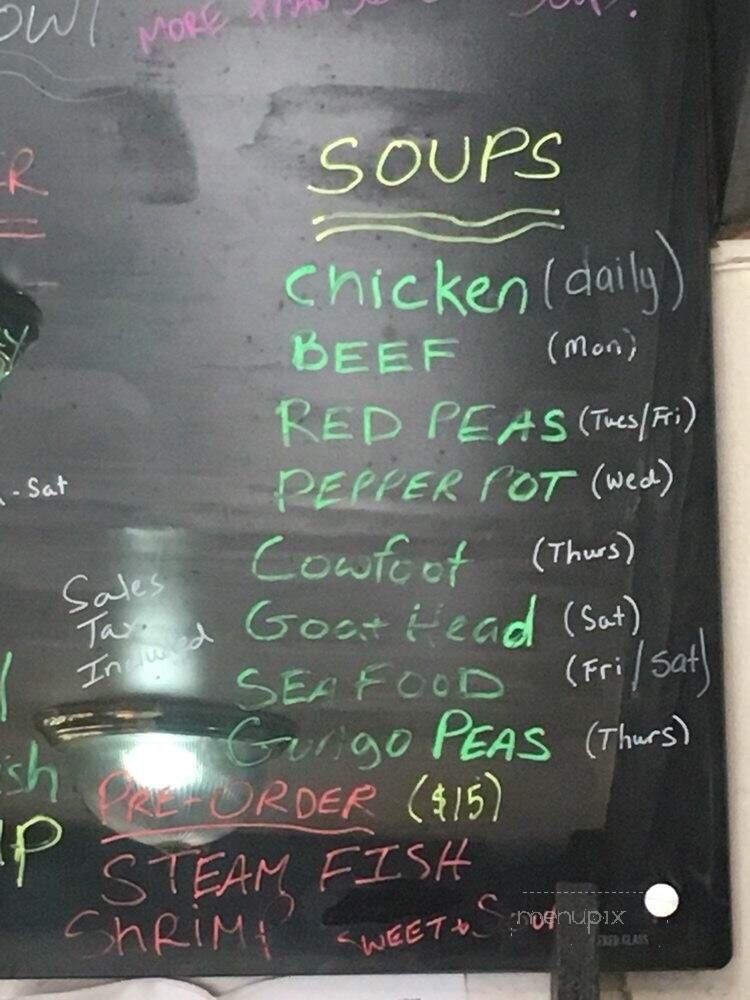 MORE THAN
SOUPS
Chicken (daily)
BEEF (Mon)
RED PEAS (Tues/Fri)
PEPPER POT (Wed)
- Sat
Cowfoot (Thurs)
Sales
Tax
Included
Goat Head (Sat)
SEAFOOD (Fri/Sat)
Gungo PEAS (Thurs)
PRE-ORDER ($15)
STEAM FISH
SHRIMP SWEET &
menupix